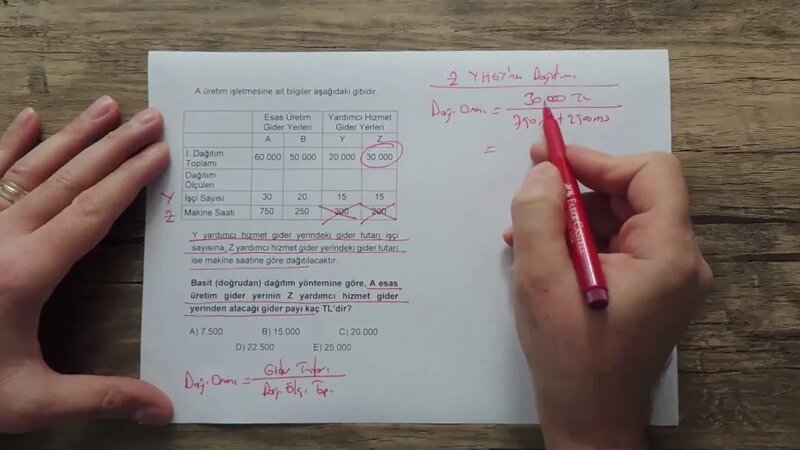 A üretim işletmesine ait bilgiler aşağıdaki gibidir.
Esas Üretim Gider Yerleri Yardımcı Hizmet Gider Yerleri
A B Y Z
I. Dağıtım Toplamı 60.000 50.000 20.000 30.000
Dağıtım Ölçüleri
Y İşçi Sayısı 30 20 15 15
Z Makine Saati 750 250 300 200
Y yardımcı hizmet gider yerindeki gider tutarı işçi
sayısına, Z yardımcı hizmet gider yerindeki gider tutarı
ise makine saatine göre dağıtılacaktır.
Basit (doğrudan) dağıtım yöntemine göre, A esas
üretim gider yerinin Z yardımcı hizmet gider
yerinden alacağı gider payı kaç TL'dir?
A) 7.500 B) 15.000 C) 20.000
D) 22.500 E) 25.000
Dağ. Oranı = Gider Tutarı
Dağ. Ölç. Top.
Z YHGY'nin Dağıtımı
Dağ. Oranı = 30.000 TL
750 + 250 ms
=
FABER-CASTELL